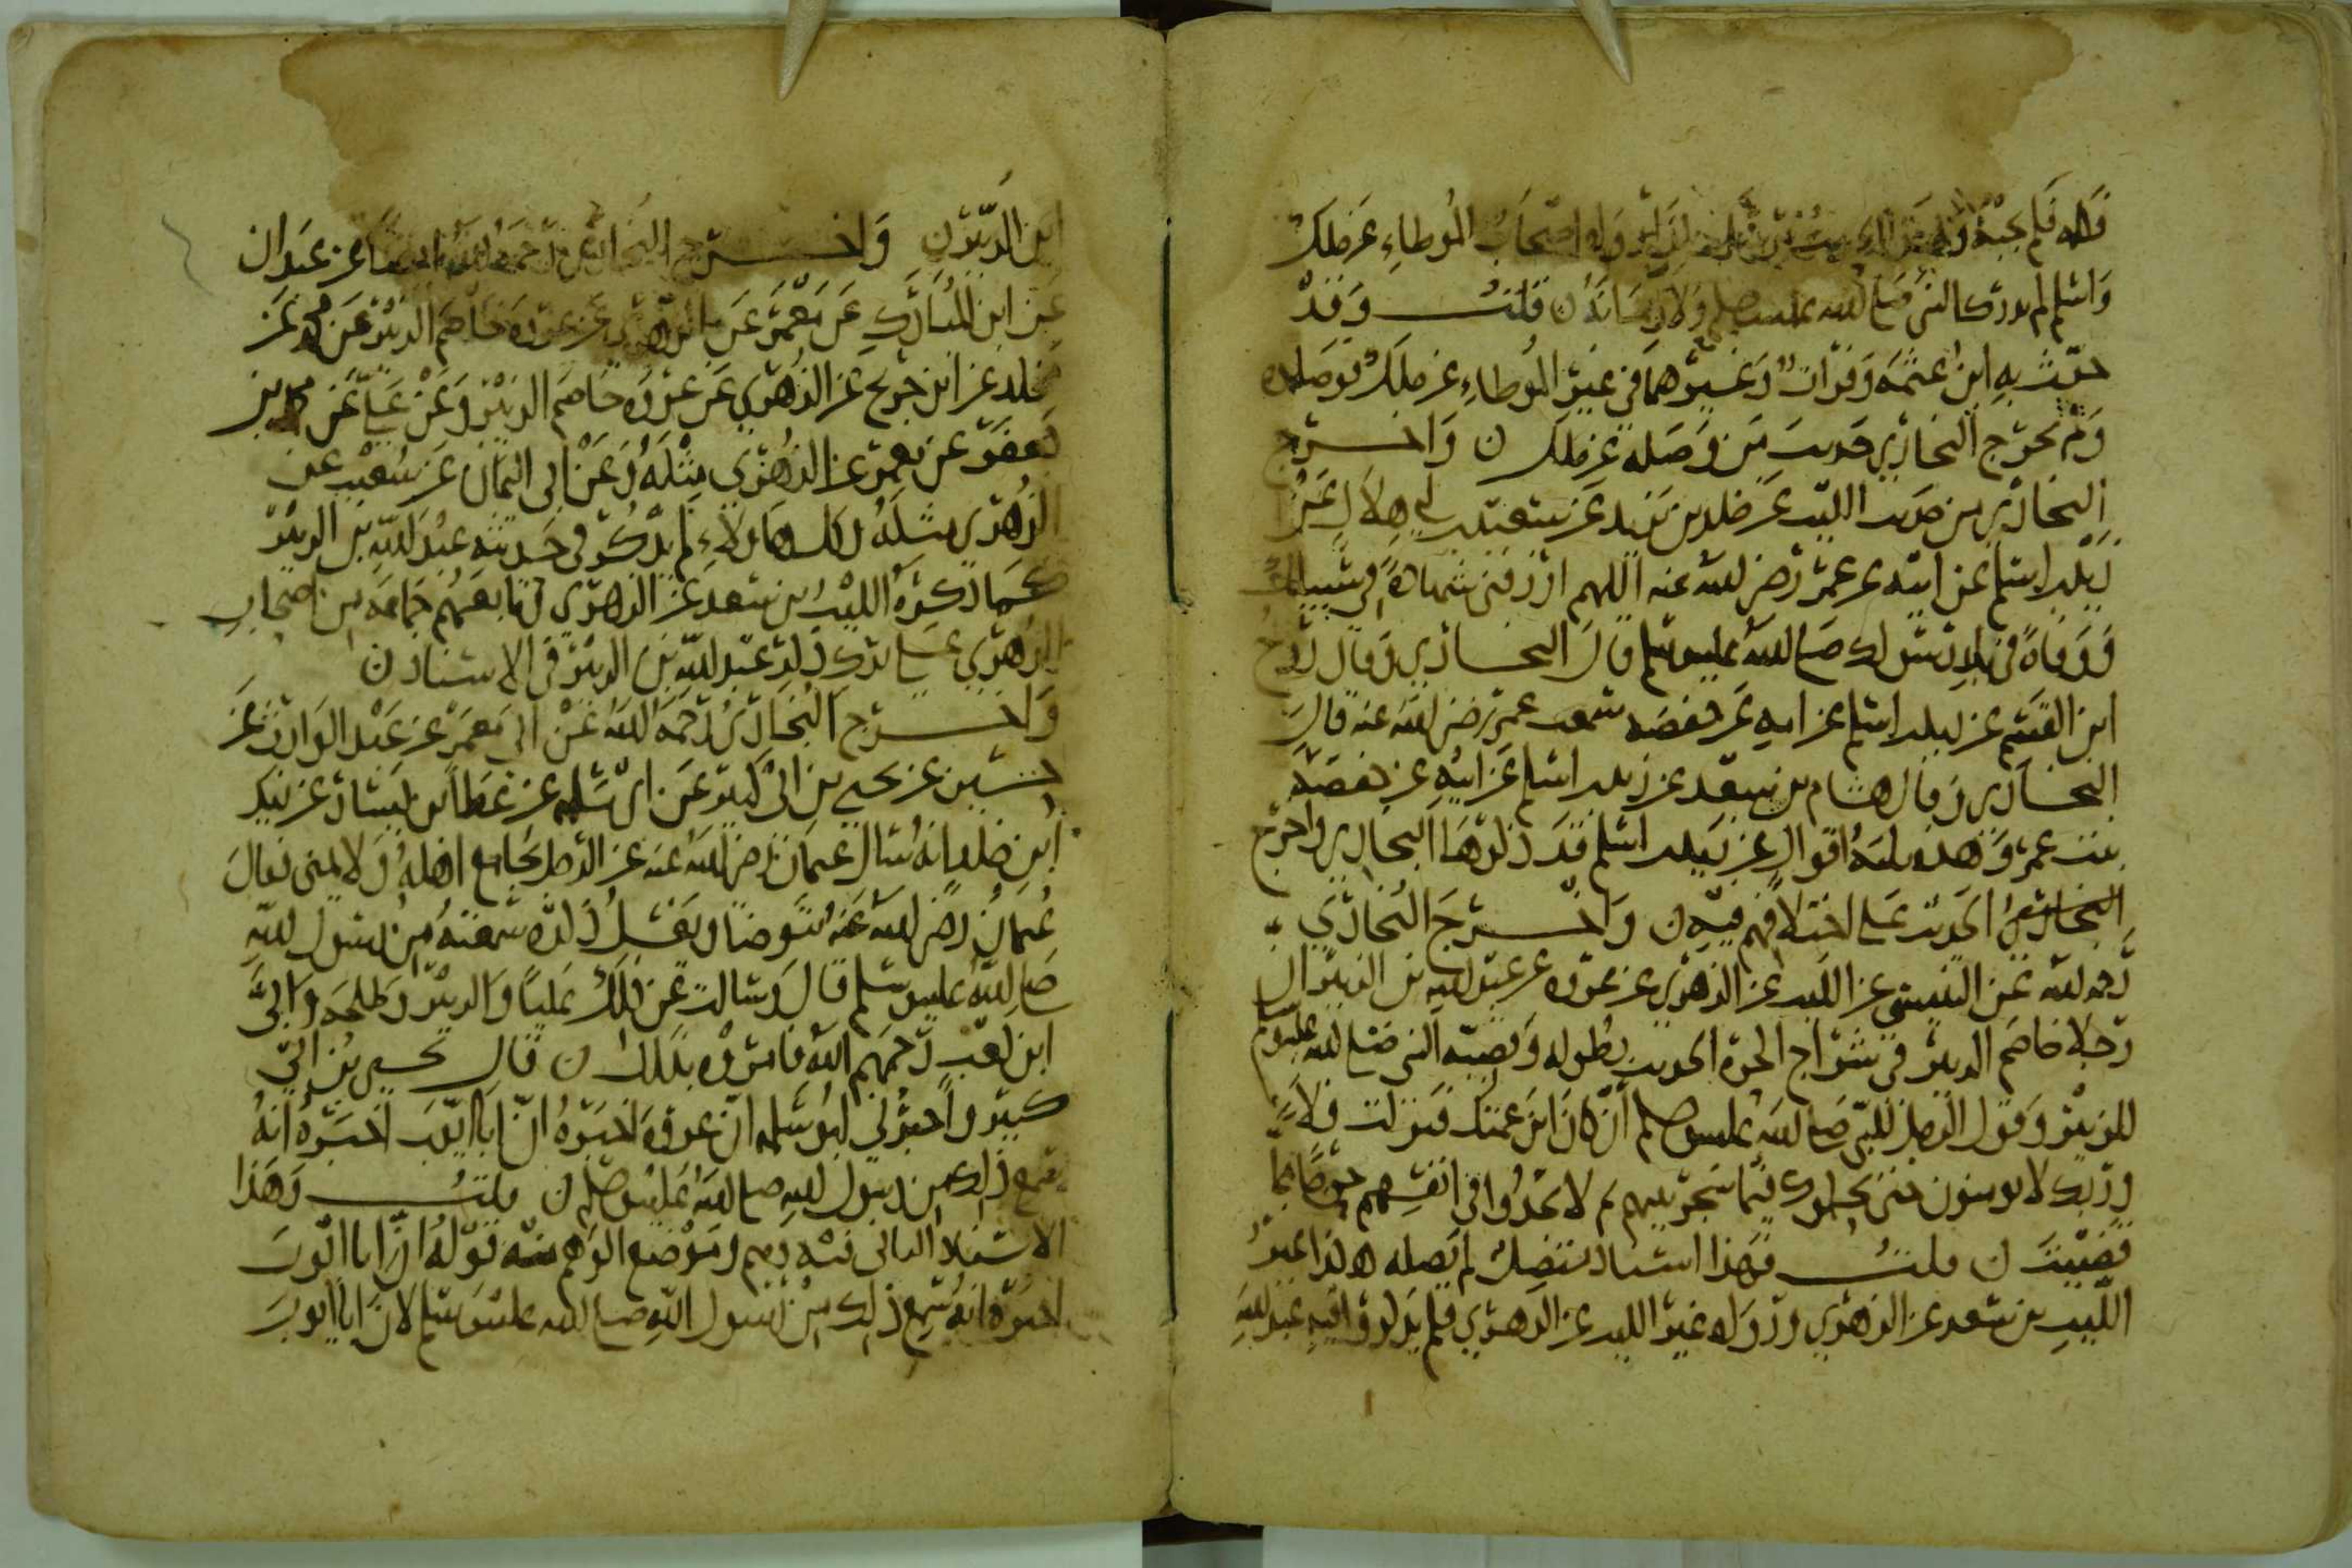 قاله فلم يجبه وهذا الحديث من رواه اصحاب الموطاء عن ملك
واسلم لم يدرك النبي صلى الله عليه وسلم ولا ن قلت وقد
حدث به ابن عثمه وقراد وغيرهما في غير الموطاء عن ملك يوصله
ولم يخرج البخاري حديث من وصله عن ملك ن واخرج
البخاري من حديث الليث عن خلد بن يزيد عن سعيد بن ابي هلال عن
زيد بن اسلم عن ابيه عن عمر رضي الله عنه اللهم ارزقني شهادة في سبيلك
ووفاة في بلد رسولك صلى الله عليه وسلم قال البخاري وقال روح
ابن القسم عن زيد بن اسلم عن ابيه عن حفصه سمعت عمر رضي الله عنه قال
البخاري وقال هشام بن سعد عن زيد بن اسلم عن ابيه عن حفصة
بنت عمر وهذه ثلثة اقوال عن زيد بن اسلم قد ذكرها البخاري واخرج
البخاري الحديث على اختلافهم فيه ن واخرج البخاري
رحمه الله عن التنيسي عن الليث عن الزهري عن عروه عن عبد الله بن الزبير ان
رجلا خاصم الزبير في شراج الحرة الحديث بطوله وقصته النبي صلى الله عليه وسلم
للزبير وقول الرجل للنبي صلى الله عليه وسلم أن كان ابن عمتك فنزلت فلا
وربك لا يومنون حتى يحكموك فيما شجر بينهم ثم لا يجدوا في انفسهم حرجا مما
قضيت ن قلت وهذا اسناد متصل لم يصله هكذا غير
الليث بن سعد عن الزهري ورواه غير الليث عن الزهري فلم يذكروا فيه عبد الله
ابن الزبير ن واخرج البخاري رحمه الله ايضا عن عبدان
عن ابن المبارك عن معمر عن الزهري عن عروه خاصم الزبير وعن محمد عن
مخلد عن ابن جريج عن الزهري عن عروه خاصم الزبير وعن علي عن محمد بن
جعفر عن معمر عن الزهري مثله وعن ابي اليمان عن شعيب عن
الزهري مثله وكل هاولاء لم يذكر في حديثه عبد الله بن الزبير
كما ذكره الليث بن سعد عن الزهري وتابعهم جماعة من اصحاب
الزهري على ترك ذكر عبد الله بن الزبير في الاسناد ن
واخرج البخاري رحمه الله عن ابي معمر عن عبد الوارث عن
حسين عن يحيى بن ابي كثير عن ابي سلمه عن عطا بن يسار عن زيد
ابن خلد انه سال عثمان رضي الله عنه عن الرجل يجامع اهله ولا يمني فقال
عثمان رضي الله عنه يتوضا ويغسل ذكره سمعته من رسول الله
صلى الله عليه وسلم قال وسالت عن ذلك عليا والزبير وطلحه وابي
ابن كعب رحمهم الله فامروه بذلك ن قال يحيى بن ابي
كثير واخبرني ابو سلمه ان عروة اخبره ان ابا ايوب اخبره انه
سمع ذلك من رسول الله صلى الله عليه وسلم ن قلت وهذا
الاسناد الثاني فيه وهم وموضع الوهم منه قوله ان ابا ايوب
اخبره انه سمع ذلك من رسول الله صلى الله عليه وسلم لان ابا ايوب